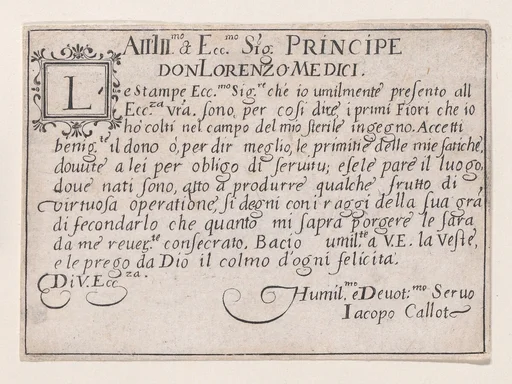 All Ill.mo & Ecc.mo Sig. PRINCIPE
DON LORENZO MEDICI.
Le stampe Ecc.mo Sig.re che io umilmente presento all
Ecc.za vra. sono, per cosi dire, i primi Fiori che io
hò colti nel campo del mio sterile ingegno. Accetti
benig.te il dono ò, per dir meglio, le primitie delle mie fatiche,
douute a lei per obligo di seruitu; e se le pare il luogo,
doue nati sono, atto a produrre qualche frutto di
virtuosa operatione, si degni con i raggi della sua gra
di fecondarlo che quanto mi sapra porgere le sara
da me reuer.te consecrato. Bacio umil.te a V.E. la Veste,
e le prego da Dio il colmo d'ogni felicita.
Di V. Ecc.za.
Humil.mo e Deuot.mo Seruo
Iacopo Callot